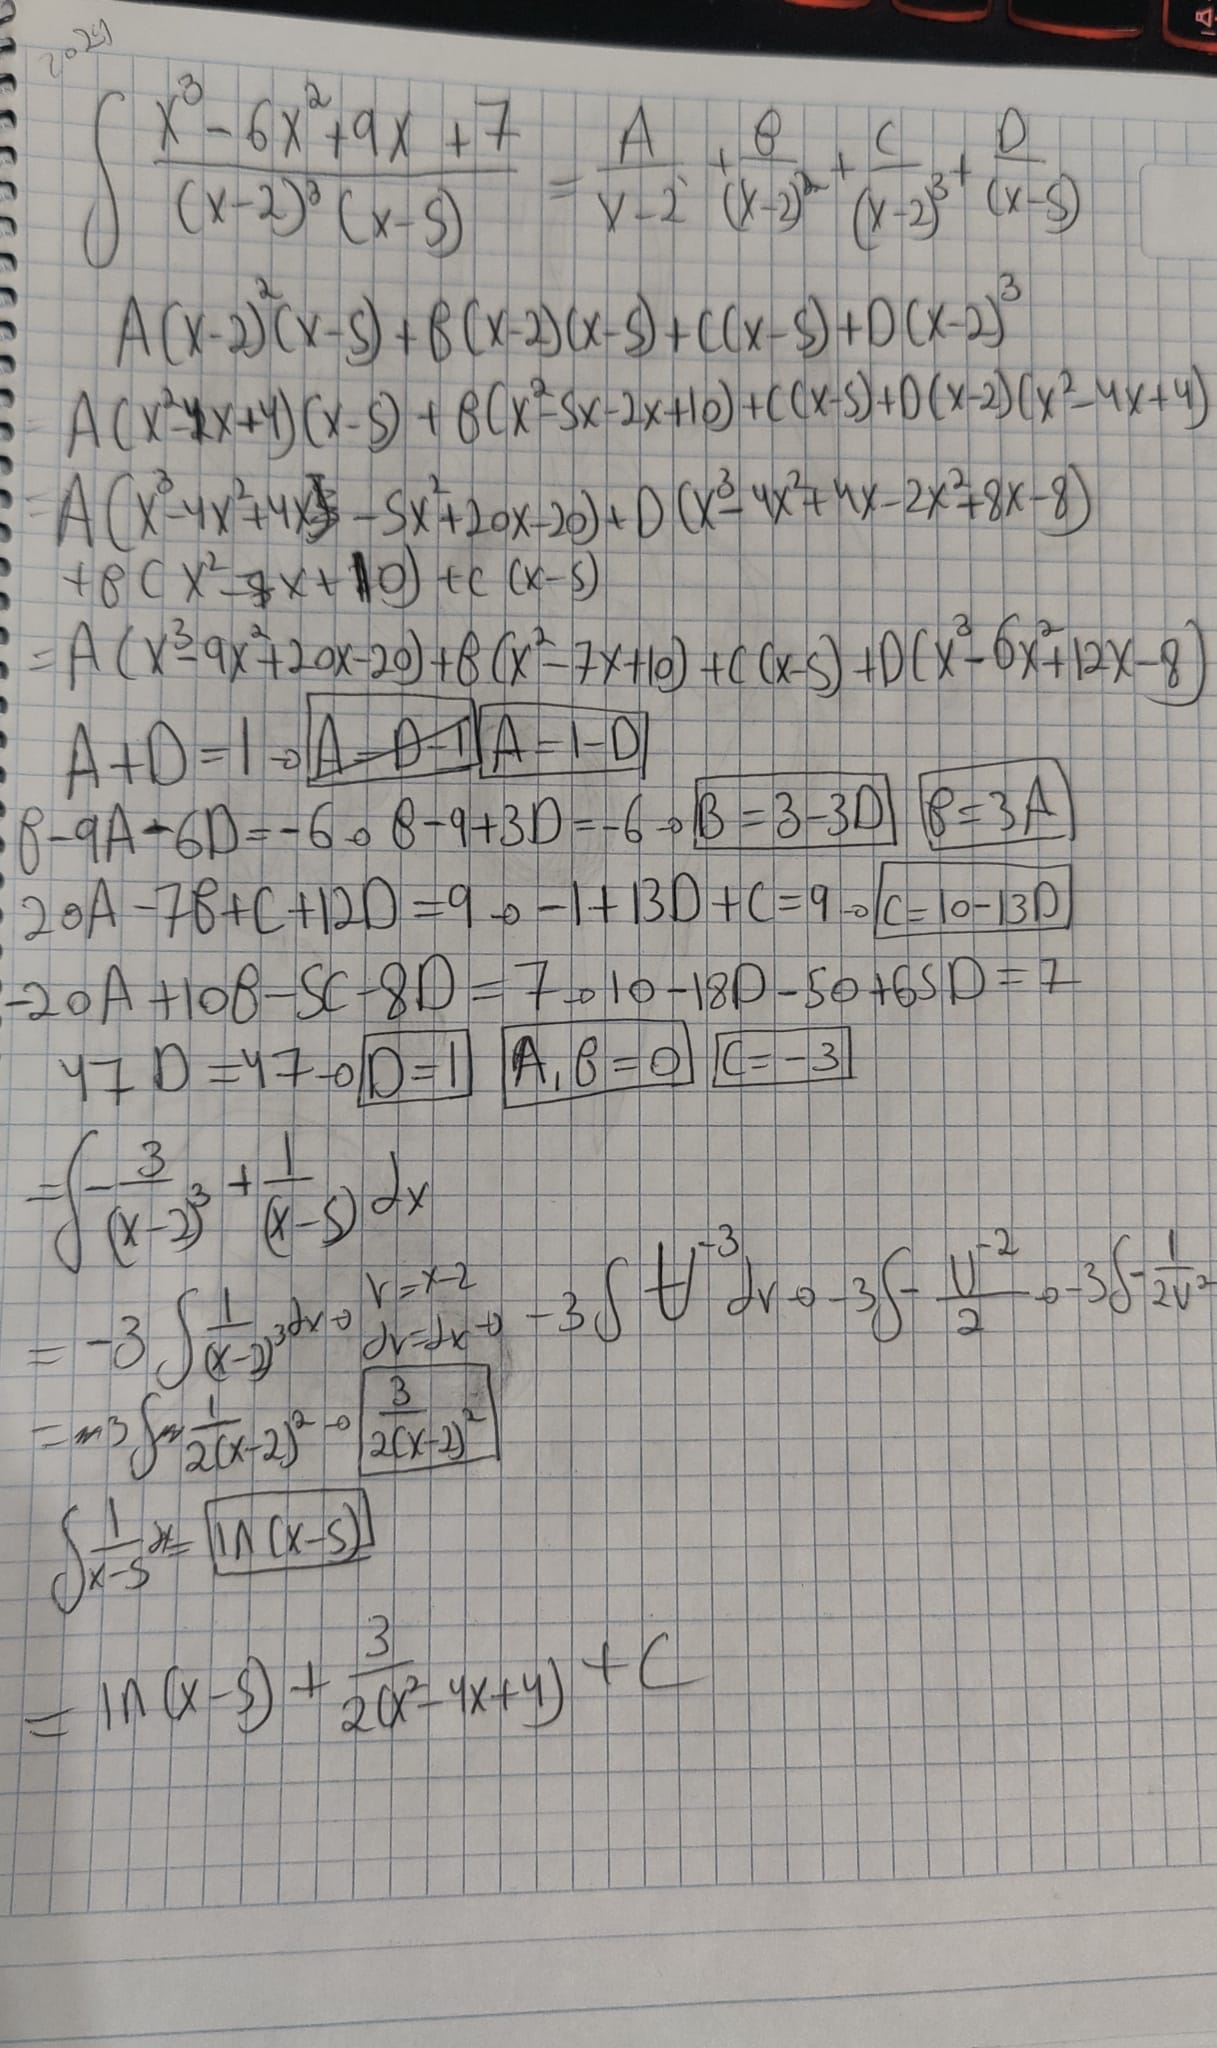 2024
∫ x³-6x²+9x+7 / (x-2)³(x-5) = A/x-2 + B/(x-2)² + C/(x-2)³ + D/(x-5)
A(x-2)²(x-5)+B(x-2)(x-5)+C(x-5)+D(x-2)³
A(x²-4x+4)(x-5)+B(x²-5x-2x+10)+C(x-5)+D(x-2)(x²-4x+4)
=A(x³-4x²+4x-5x²+20x-20)+D(x³-4x²+4x-2x²+8x-8)
+B(x²-7x+10)+C(x-5)
=A(x³-9x²+20x-20)+B(x²-7x+10)+C(x-5)+D(x³-6x²+12x-8)
A+D=1→ A=D-1 A=1-D
B-9A-6D=-6→ B-9+3D=-6→ B=3-3D B=3A
20A-7B+C+12D=9→ -1+13D+C=9→ C=10-13D
-20A+10B-5C-8D=7→10-18D-50+65D=7
47D=47→ D=1 A,B=0 C=-3
=∫-3/(x-2)³ + 1/(x-5) dx
=-3∫1/(x-2)³ dx→ v=x-2 dv=dx→ -3∫v⁻³dv→ -3∫-v⁻²/2 → -3∫-1/2v²
=-3∫-1/2(x-2)² → 3/2(x-2)²
∫1/x-5 dx= ln(x-5)
= ln(x-5)+ 3/2(x²-4x+4) +C